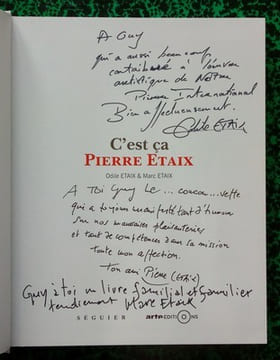 A Guy
qui a aussi beaucoup
contribué à l'œuvre
artistique de Notre
Pierre International
Bien affectueusement.
Odile ETAIX
C'est ça
PIERRE ETAIX
Odile ETAIX & Marc ETAIX
A Toi Guy le ... coucou... vette
qui a toujours manifesté tant d'humour
sur nos mauvaises plaisanteries
et tant de compétences dans sa mission
toute mon affection.
Ton ami Pierre (ETAIX)
Guy à toi un livre familial et familier
tendrement Marc Etaix
SÉGUIER
arte EDITIONS